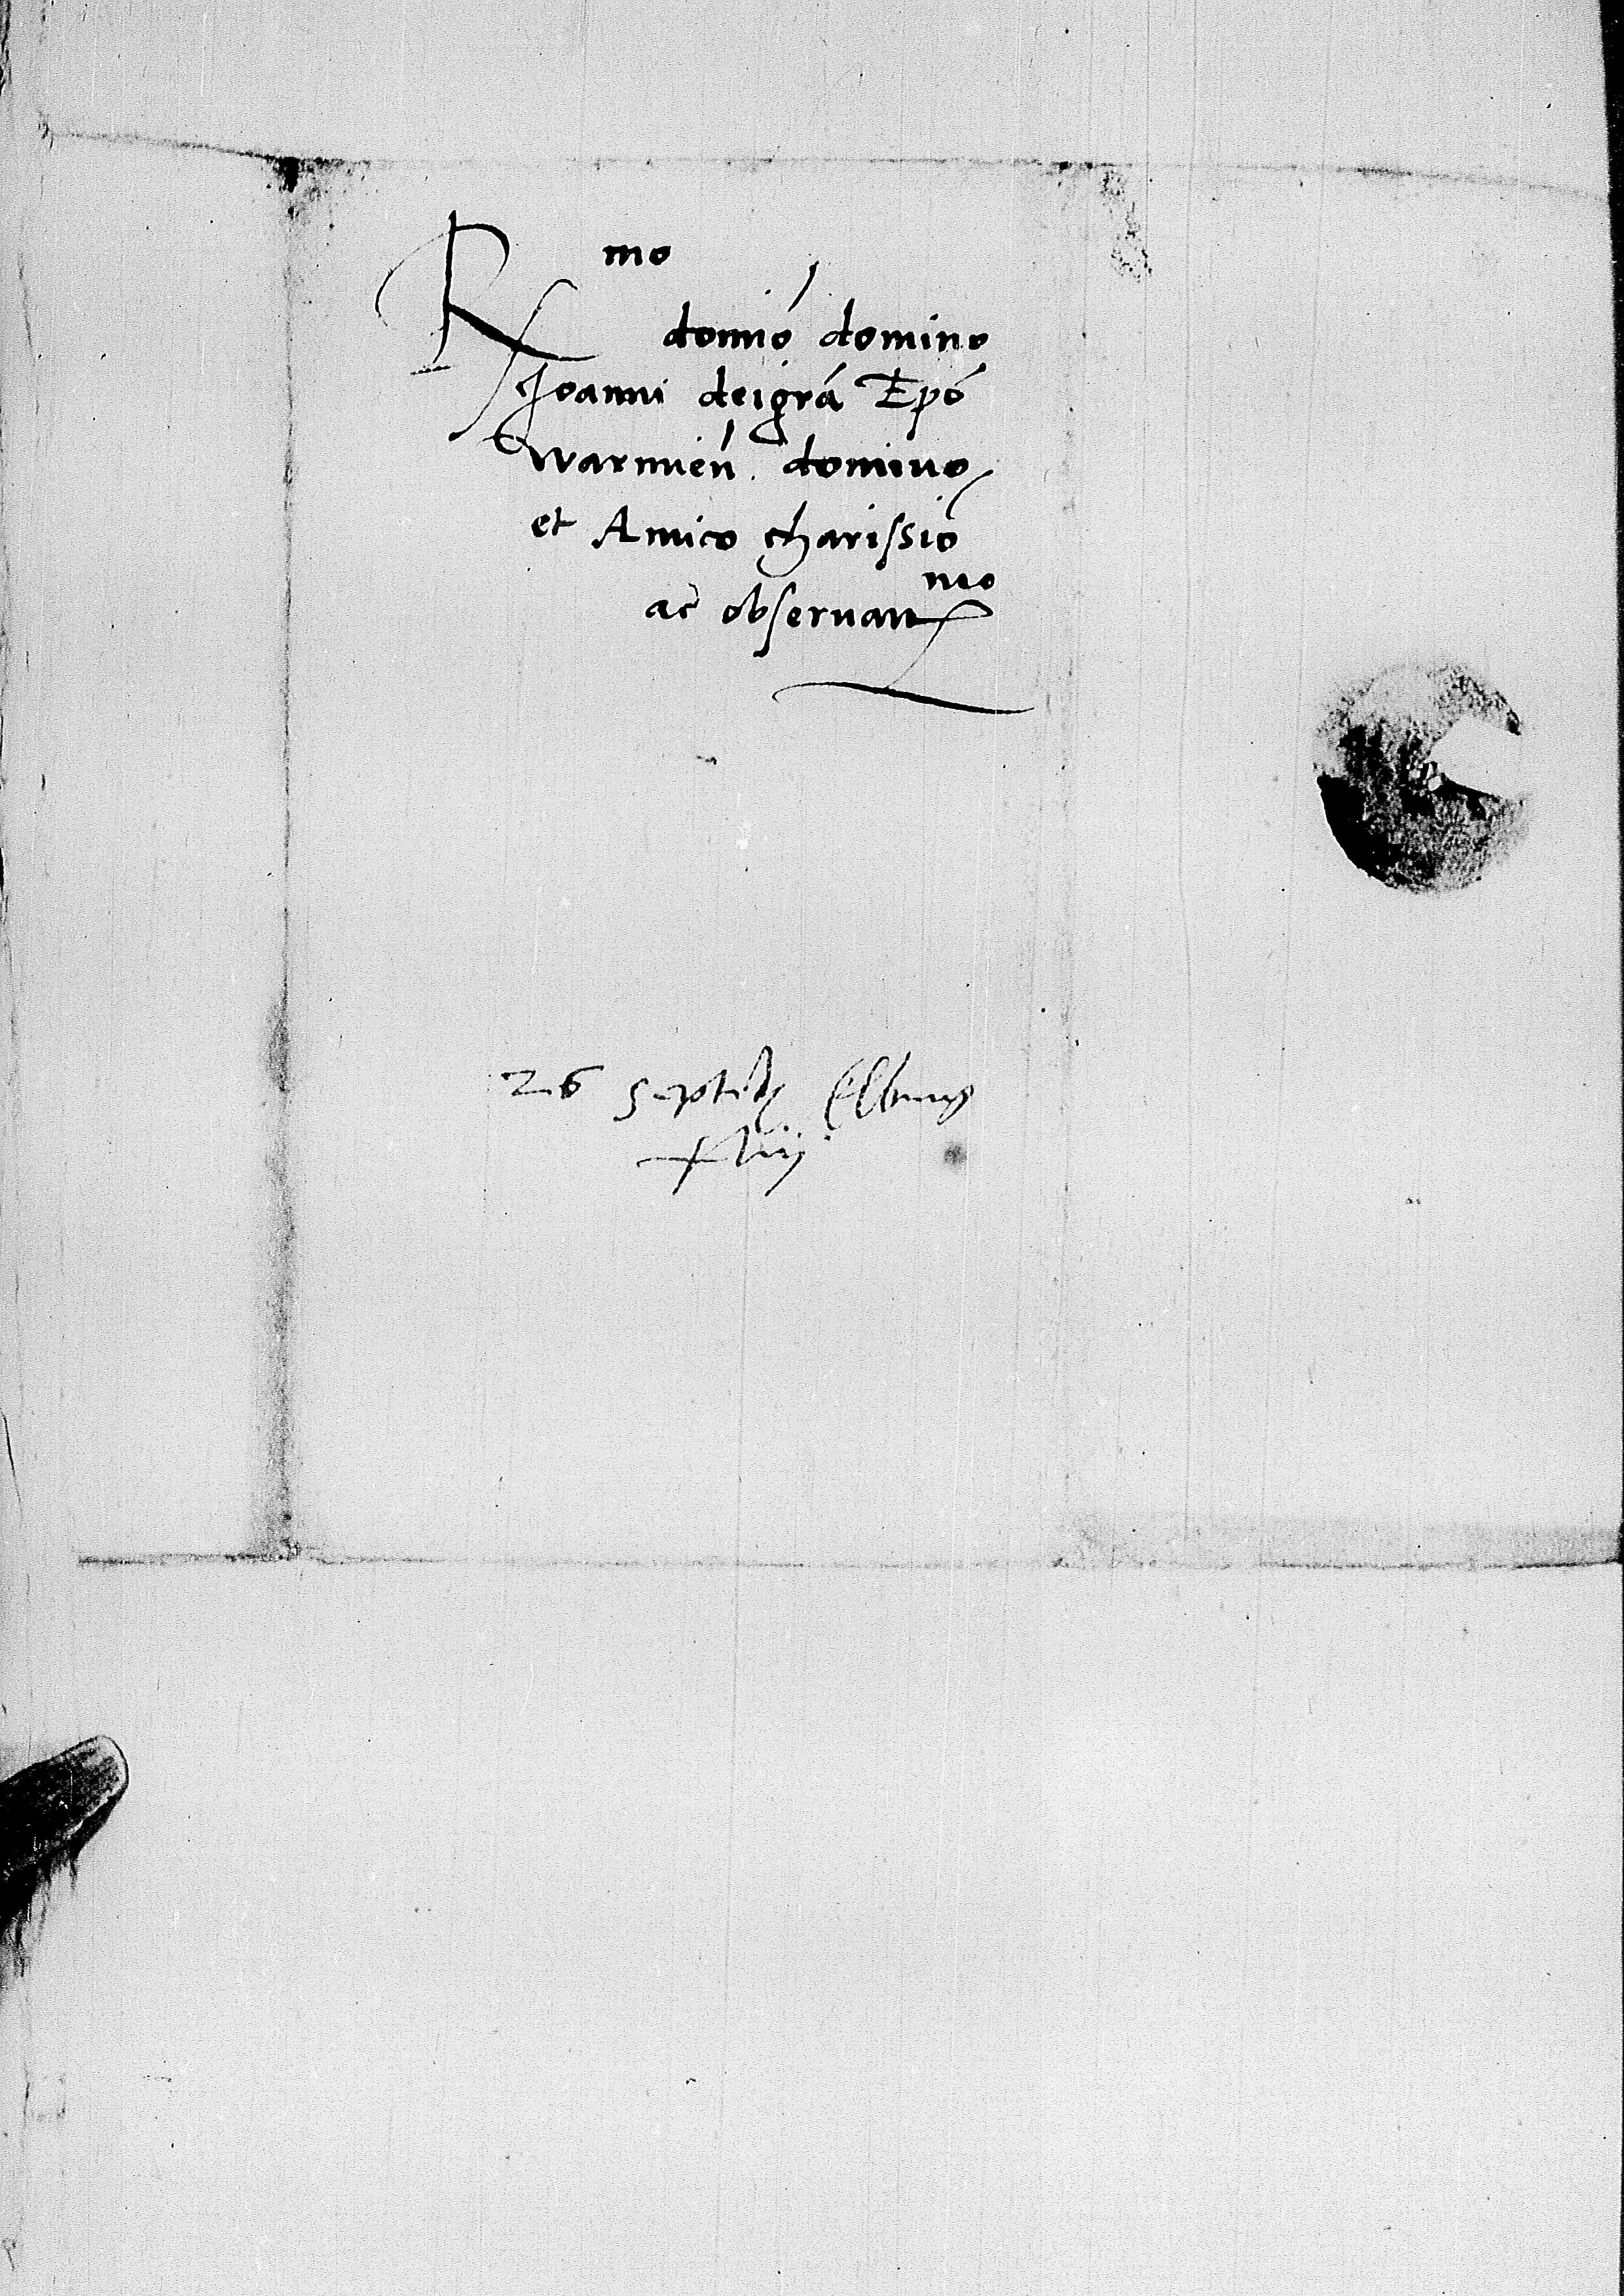 R mo
domio domino
Joanni dei gra Epo
warmien. domino
et Amico charissio
ac obseruan mo
26 septeb Elbing
xliij